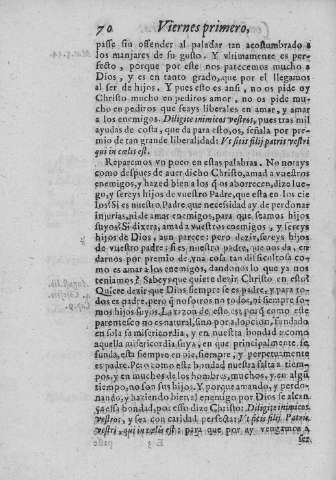 70 Viernes primero,
passe sin offender al paladar tan acostumbrado a
los manjares de su gusto. Y ultimamente es per-
fecto, porque por este nos parecemos mucho a
Dios, y es en tanto grado, que por el llegamos
al ser de hijos. Y pues esto es ansi, no os pide oy
Christo mucho en pediros amor, no os pide mu-
cho en pediros que seays liberales en amar, y amar
a los enemigos. Diligite inimicos vestros, pues tras mil
ayudas de costa, que da para esto, os, señala por pre-
mio de tan grande liberalidad: Vt sitis filij patris vestri
qui in cœlis est.
Reparemos vn poco en estas palabras. No notays
como despues de auer dicho Christo, amad a vuestros
enemigos, y hazed bien a los q̃ os aborrecen, dize lue-
go, y sereys hijos de vuestro Padre, que esta en los cie
los? Si es nuestro Padre, que necessidad ay de perdonar
injurias, ni de amar enemigos, para que seamos hijos
suyos? Si dixera, amad a vuestros enemigos, y sereys
hijos de Dios, aun parece: pero dezir, sereys hijos
de vuestro padre: si es nuestro padre, que nos da, en
darnos por premio de vna cosa tan dificultosa co-
mo es amar a los enemigos, dandonos lo que ya nos
teniamos? Sabeys que quiere dezir Christo en esto?
Quiere dezir que Dios siempre es padre, y para to-
dos es padre, pero q̃ nosotros no todos, ni siempre so-
mos hijos suyos. La razon de esto es, porq̃ como este
parentesco no es natural, sino por adopcion, fundado
en sola su misericordia, y en nuestra bondad: como
aquella misericordia suya, en que principalmente se
funda, està siempre en pie, siempre, y perpetuamente
es padre. Pero como esta bondad nuestra falta a tiem-
pos, y en muchos de los hombres, muchos, y en algũ
tiempo, no son sus hijos. Y porque amando, y perdo-
nando, y haziendo bien al enemigo por Dios se alcan
ça essa bondad, por esso dize Christo: Diligite inimicos
vestros, y sea con caridad perfecta: Vt sitis filij Patris
vestri, qui in cœlis est: para que por ay vengamos a
E 3 ser